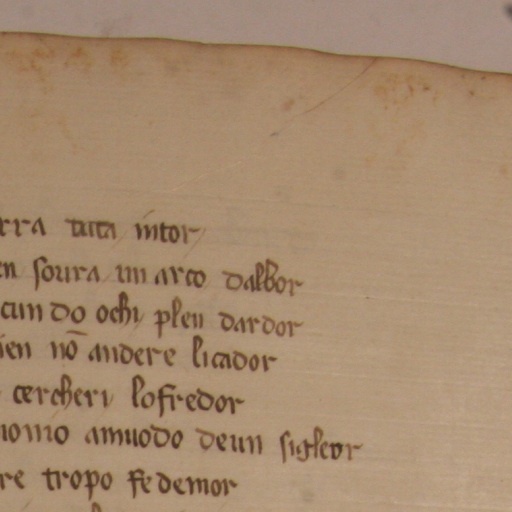 rra tuta intor
en soura un arco dalbor
cun do ochi plen dardor
ien nō andere licador
cercheri lofredor
omo amuodo deun sigleor
re tropo fe demor